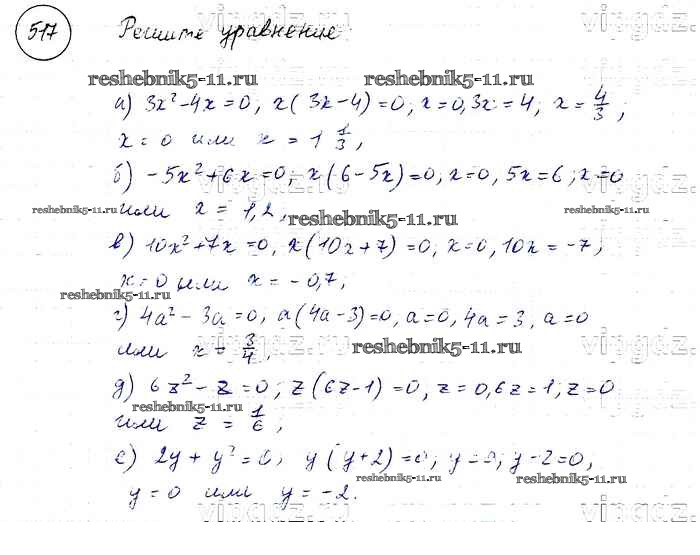 517 Решите уравнение:
reshebnik5-11.ru reshebnik5-11.ru
а) 3x²-4x=0, x(3x-4)=0, x=0, 3x=4, x=4/3;
x=0 или x=1 1/3;
б) -5x²+6x=0; x(6-5x)=0, x=0, 5x=6; x=0
reshebnik5-11.ru reshebnik5-11.ru
или x=1,2,
reshebnik5-11.ru
в) 10x²+7x=0, x(10x+7)=0; x=0, 10x=-7;
x=0 или x=-0,7;
reshebnik5-11.ru
г) 4a²-3a=0, a(4a-3)=0, a=0, 4a=3, a=0
или x=3/4,
reshebnik5-11.ru
д) 6z²-z=0; z(6z-1)=0, z=0, 6z=1; z=0
reshebnik5-11.ru
или z=1/6;
е) 2y+y²=0; y(y+2)=0; y=0; y-2=0,
reshebnik5-11.ru reshebnik5-11.ru
y=0 или y=-2.